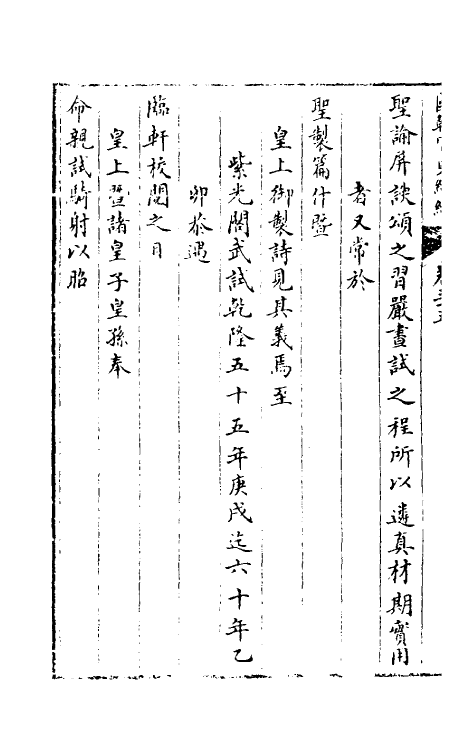 國朝宮史續編 卷三十五
聖論屏諛頌之習嚴晝試之程所以遴真材期實用
者又常於
聖製篇什暨
皇上御製詩見其義焉至
紫光閣武試乾隆五十五年庚戌迄六十年乙
卯恭遇
臨軒校閱之日
皇上暨諸皇子皇孫奉
命親試騎射以昭